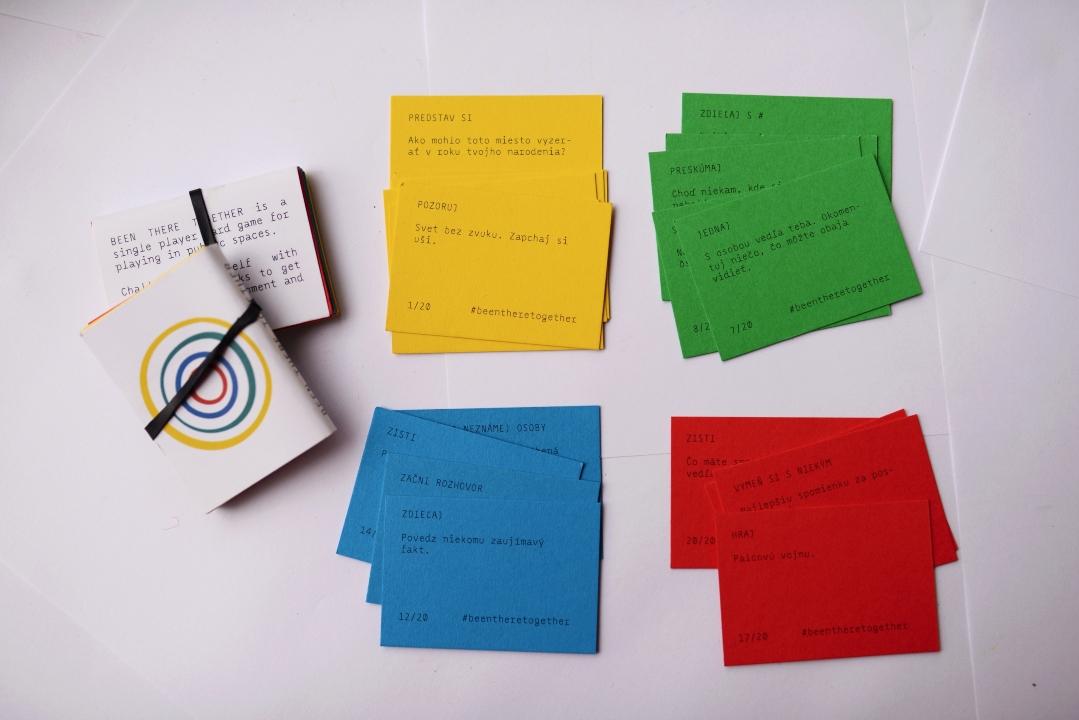 BEEN THERE T GETHER is a
single player ard game for
playing in pu c spaces.
elf with
ks to get
nment and
PREDSTAV SI
Ako mohlo toto miesto vyzer-
ať v roku tvojho narodenia?
POZORUJ
Svet bez zvuku. Zapchaj si
uši.
1/20 #beentheretogether
ZDIEĽAJ S #
PRESKÚMAJ
Choď niekam, kde
JEDNAJ
S osobou vedľa teba. Okomen-
tuj niečo, čo môžte obaja
vidieť.
8/2
7/20 #beentheretogether
NEZNÁMEJ OSOBY
ZISTI
ZAČNI ROZHOVOR
14/
ZDIEĽAJ
Povedz niekomu zaujímavý
fakt.
12/20 #beentheretogether
ZISTI
Čo máte
vedľ
20/20
VYMEŇ SI S NIEKÝM
najlepšiu spomienku za pos-
HRAJ
Palcovú vojnu.
17/20 #beentheretogether